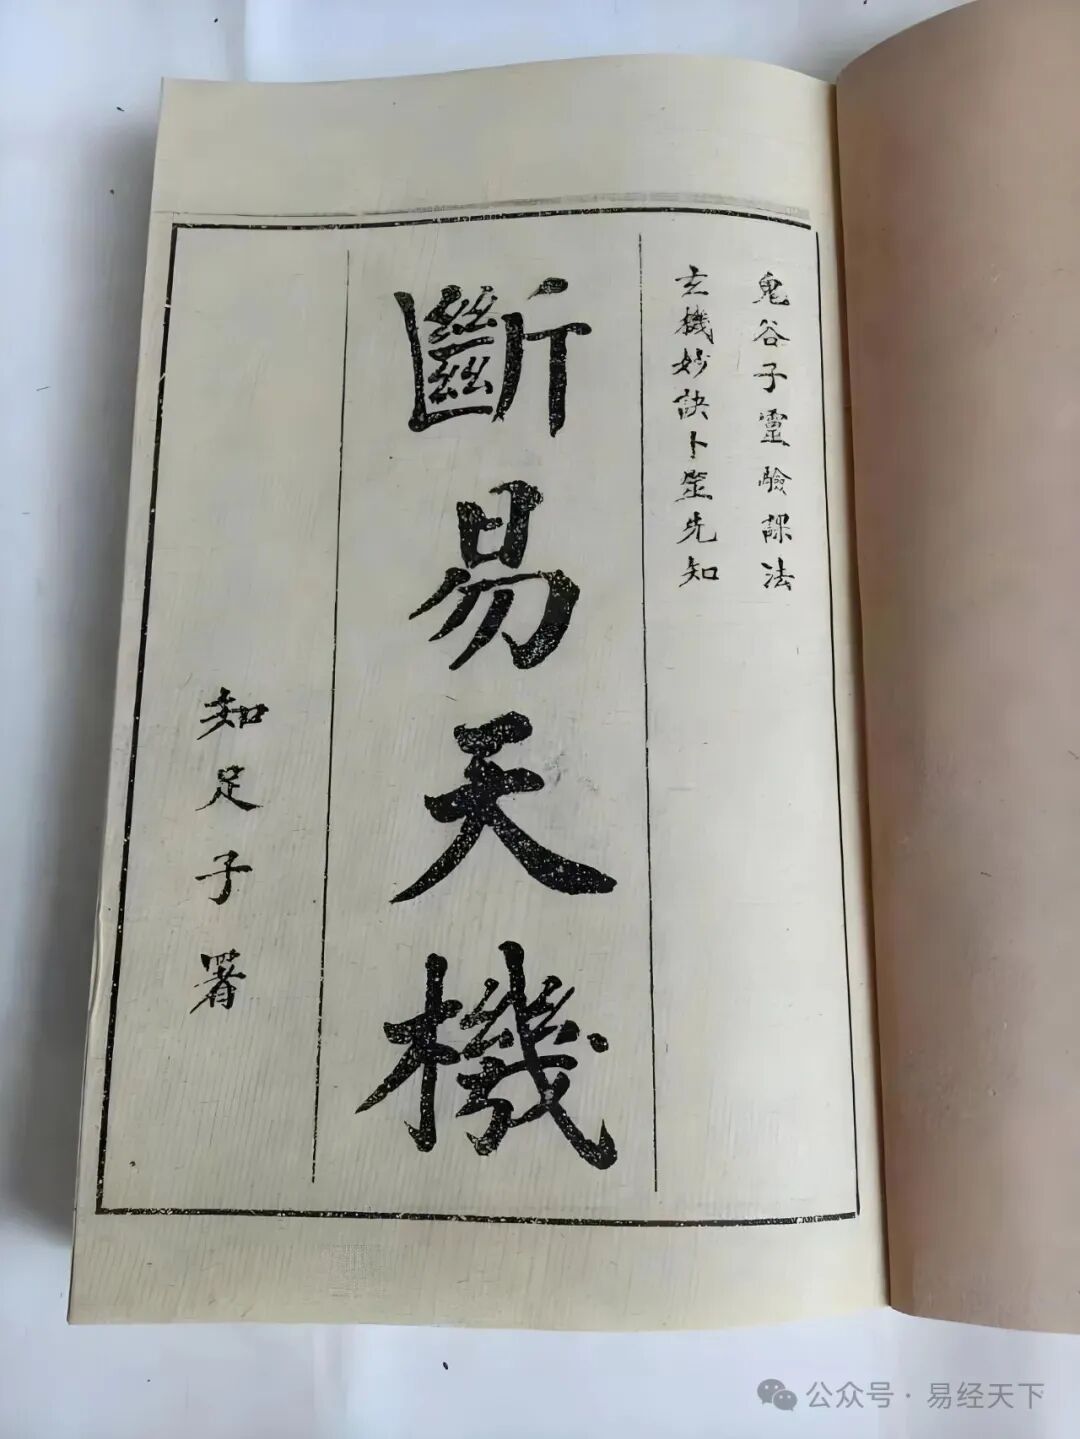 鬼谷子靈驗課法
玄機妙訣卜筮先知
斷易天機
知足子署
公众号·易经天下